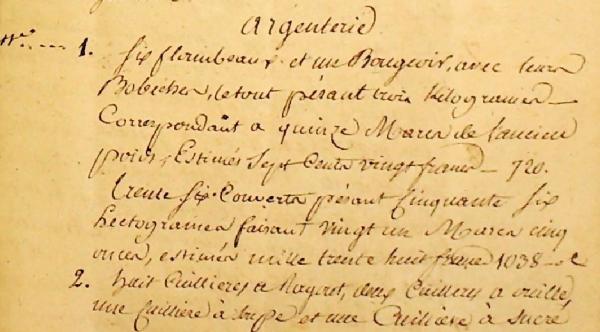 Argenterie
Nos. 1. Six flambeaux et un Bougeoir, avec leurs
Bobeches, le tout pésant trois kilogrames
Correspondant a quinze Marcs de l'ancien
poids, Estimés Sept Cents vingt francs 720.
trente Six Couverts pésant Cinquante Six
hectogrames faisant vingt un Marcs cinq
onces, estimés mille trente huit francs 1038
2. huit Cuillieres a Ragout, deux Cuilleres a ouille,
une Cuilliere à Soupe et une Cuilliere à Sucre